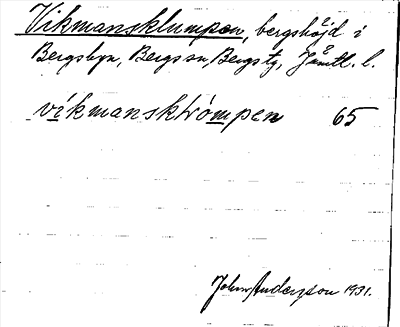 Vikmansklumpen, bergshöjd i
Bergsbyn, Bergs sn, Bergs tg, Jämtl. l.
víkmansktròmpen 65
John Anderzson 1931.